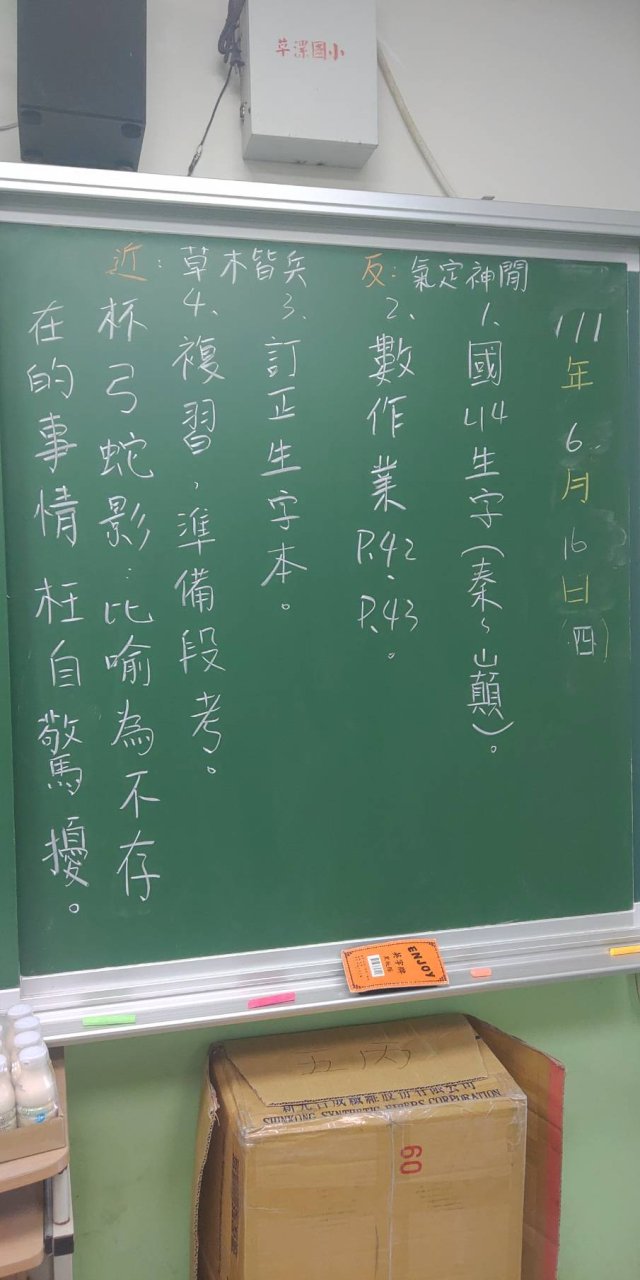 草漯國小
111年6月16日(四)
1、國L14生字(秦~山顛)。
2、數作業P.42、P.43。
3、訂正生字本。
4、複習,準備段考。
杯弓蛇影:比喻為不存
在的事情 枉自驚擾。
近:草木皆兵
反:氣定神閒
ENJOY
五丙
新光合成纖維股份有限公司
SHINKONG SYNTHETIC FIBERS CORPORATION
09